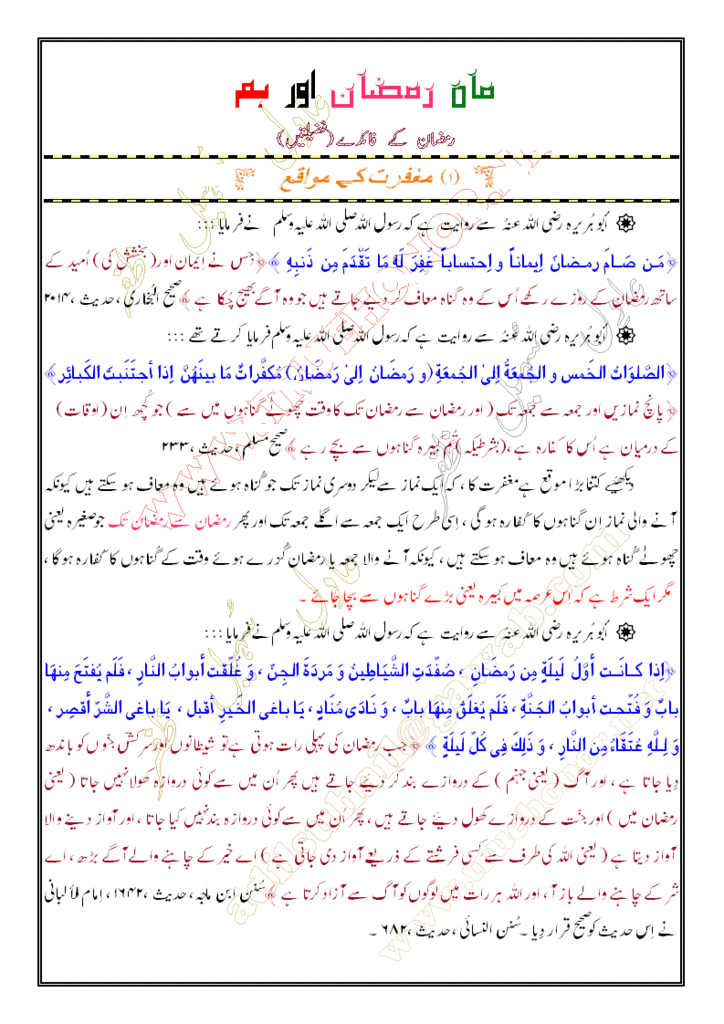 ماہ رمضان اور ہم
رمضان کے فائدے (فضیلتیں)
(۱) مغفرت کے مواقع
أبو ہُریرہ رضی اللہ عنہُ سے روایت ہے کہ رسول اللہ صلی اللہ علیہ وسلم نے فرمایا :::
﴿مَن صَـامَ رمـضانَ اِیماناً و اِحتساباً غُفِرَ لَهُ مَا تَقَّدمَ مِن ذَنبِهِ ﴾ ﴿جس نے اِیمان اور (بخشش کی) اُمید کے
ساتھ رمضان کے روزے رکھے اُس کے وہ گناہ معاف کر دیے جاتے ہیں جو وہ آگے بھیج چکا ہے ﴾ صحیح البُخاری ، حدیث ، ۲۰۱۴
أبو ہُریرہ رضی اللہ عنہُ سے روایت ہے کہ رسول اللہ صلی اللہ علیہ وسلم فرمایا کرتے تھے :::
﴿الصَّلوَاتُ الخَمس و الجُمعَةُ اِلیٰ الجُمعَةِ (و رَمضَانَ اِلیٰ رَمضَانَ) مُکفَّراتٌ مَا بینَهُنَّ اِذا أجتَنَبتَ الکَبائِر﴾
﴿ پانچ نمازیں اور جمعہ سے جمعہ تک ( اور رمضان سے رمضان تک کا وقت چھوٹے گناہوں میں سے ) جو کُچھ اِن (اوقات)
کے درمیان ہے اُس کا کفارہ ہے ، (بشرطیکہ ) تُم کبیرہ گناہوں سے بچے رہے ﴾ صحیح مُسلم ، حدیث ، ۲۳۳
دیکھیے کتنا بڑا موقع ہے مغفرت کا ، کہ ایک نماز سے لیکر دوسری نماز تک جو گناہ ہوئے ہیں وہ معاف ہو سکتے ہیں کیونکہ
آنے والی نماز اِن گناہوں کا کفارہ ہو گی ، اِسی طرح ایک جمعہ سے اگلے جمعہ تک اور پھر رمضان سے رمضان تک جو صغیرہ یعنی
چھوٹے گناہ ہوئے ہیں وہ معاف ہو سکتے ہیں ، کیونکہ آنے والا جمعہ یا رمضان گُزرے ہوئے وقت کے گناہوں کا کفارہ ہو گا ،
مگر ایک شرط ہے کہ اِس عرصہ میں کبیرہ یعنی بڑے گناہوں سے بچا جائے ۔
أبو ہُریرہ رضی اللہ عنہُ سے روایت ہے کہ رسول اللہ صلی اللہ علیہ وسلم نے فرمایا :::
﴿اِذا کـانَـت أوَّلُ لَیلَةٍ مِن رَمضَانِ ، صفِّدَتِ الشَّیَاطِینُ وَ مَردَةَ الجِنِّ ، وَ غُلِّقت أبوابُ النَّارِ ، فَلَم یُفتَحَ مِنهَا
بابٌ وَ فُتِّحت أبوابُ الجَنَّةِ ، فَلَم یَغلَقُ مِنهَا بابٌ ، وَ نَادَی مُنَادٍ ، یَا باغی الخَیرِ أقبل ، یَا باغی الشَّرِّ أقصِر ،
وَ لِـلَّهِ عتَقَاءُ مِن النَّارِ ، وَ ذَلِکَ فِی کُلِّ لَیلَةٍ ﴾ ﴿ جب رمضان کی پہلی رات ہوتی ہے تو شیطانوں اور سرکش جنّوں کو باندھ
دِیا جاتا ہے ، اور آگ ( یعنی جہنم ) کے دروازے بند کر دیئے جاتے ہیں پھر اُن میں سے کوئی دروازہ کھولا نہیں جاتا ( یعنی
رمضان میں ) اور جنّت کے دروازے کھول دیئے جاتے ہیں ، پھر اُن میں سے کوئی دروازہ بند نہیں کیا جاتا ، اور آواز دینے والا
آواز دیتا ہے ( یعنی اللہ کی طرف سے کِسی فرشتے کے ذریعے آواز دی جاتی ہے ) اے خیر کے چاہنے والے آگے بڑھ ، اے
شر کے چاہنے والے باز آ ، اور اللہ ہر رات میں لوگوں کو آگ سے آزاد کرتا ہے ﴾ سُنن ابن ماجہ ، حدیث ، ۱۶۴۲ ، اِمام الألبانی
نے اِس حدیث کو صحیح قرار دِیا ۔ سُنن النسائی ، حدیث ، ۶۸۲ ۔